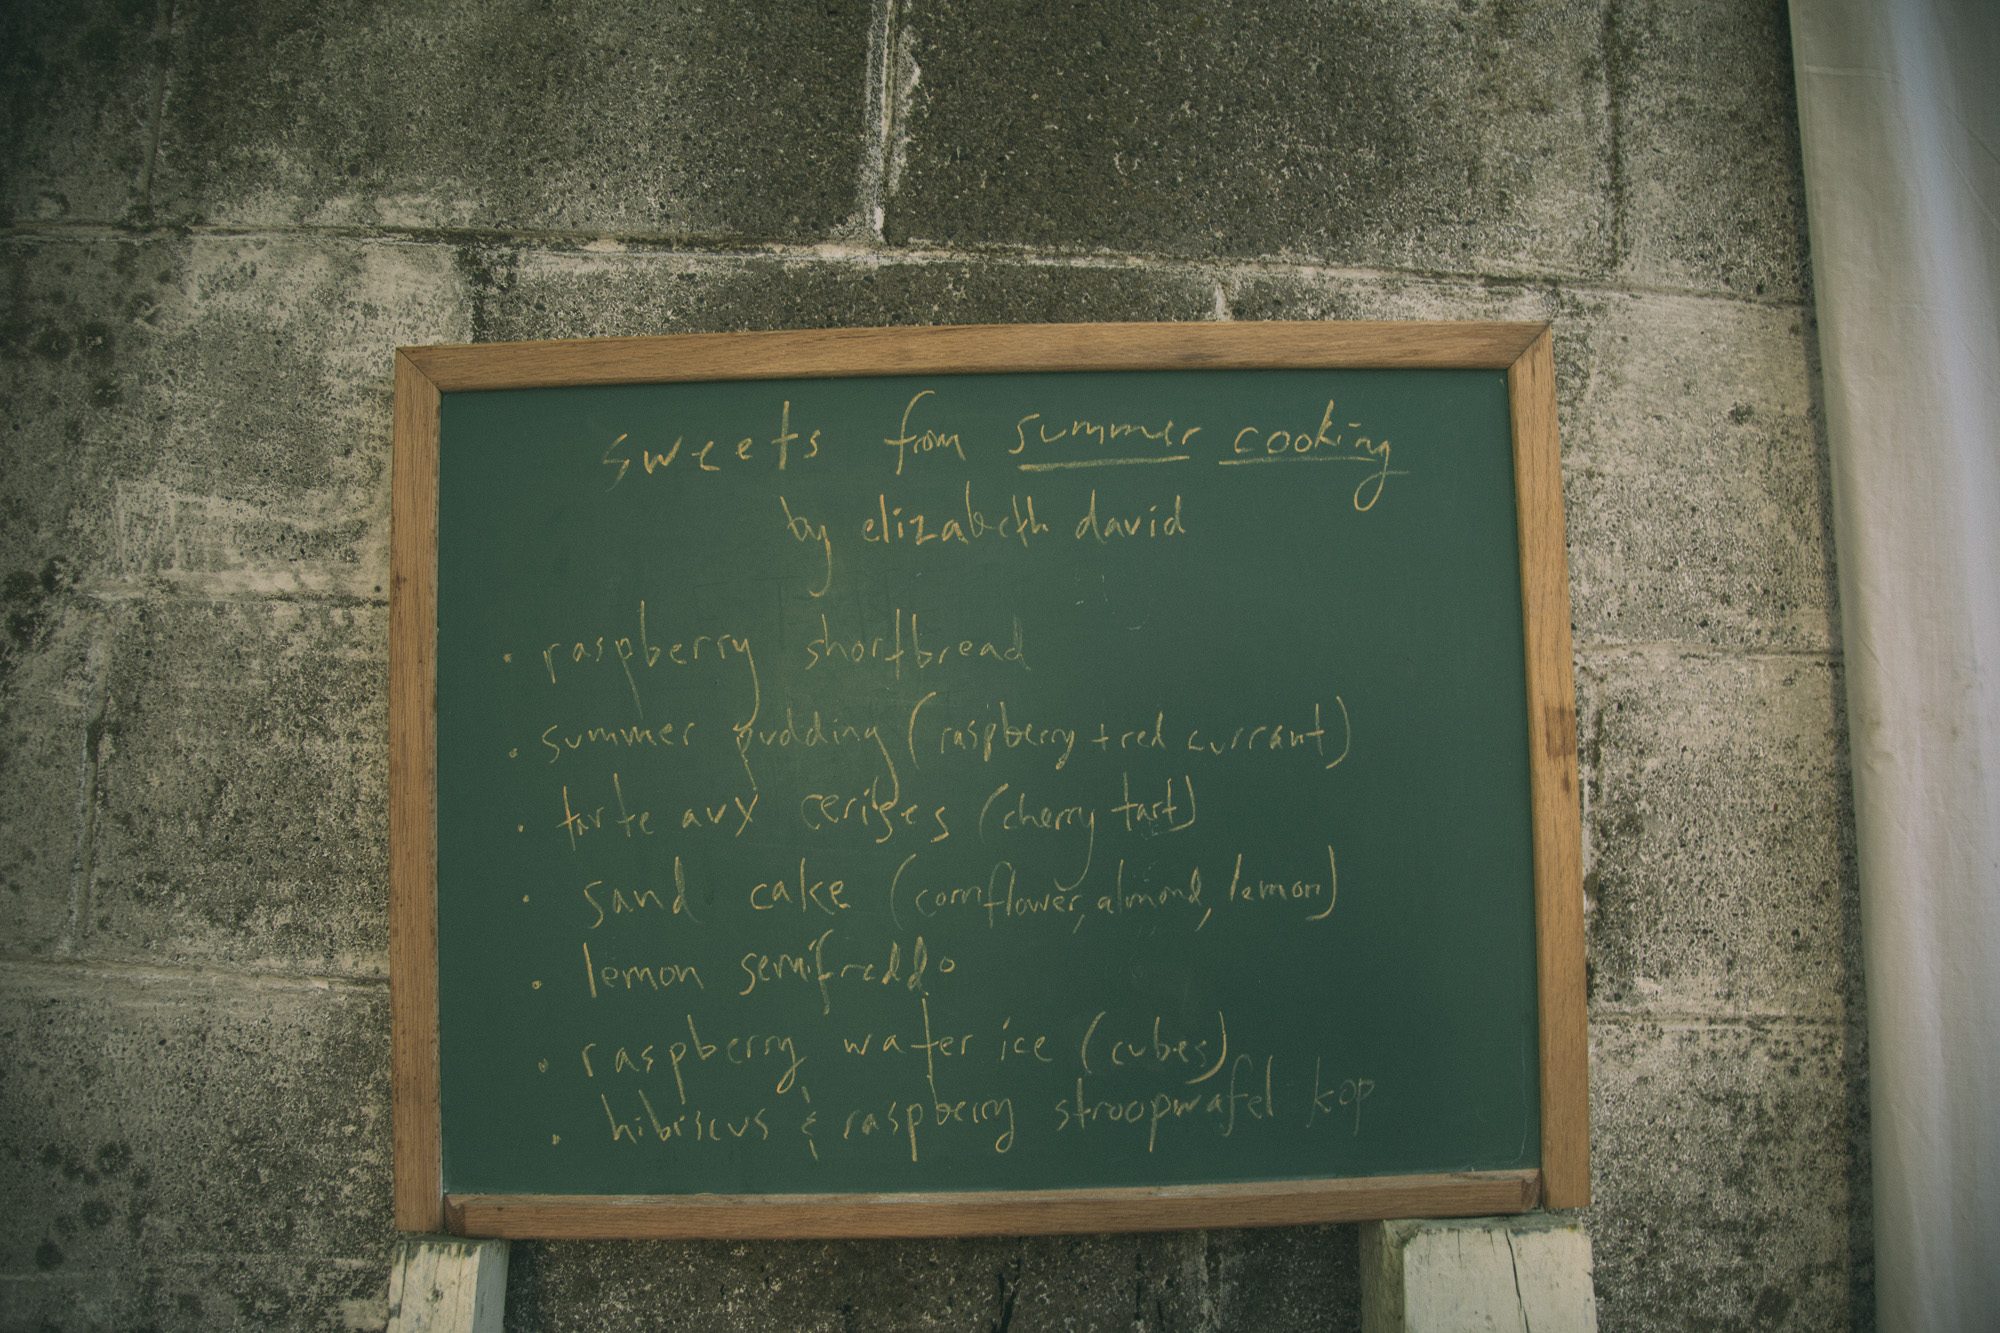 sweets from summer cooking
by elizabeth david
• raspberry shortbread
• summer pudding (raspberry + red currant)
• tarte aux cerises (cherry tart)
• sand cake (cornflower, almond, lemon)
• lemon semifreddo
• raspberry water ice (cubes)
• hibiscus & raspberry stroopwafel kop